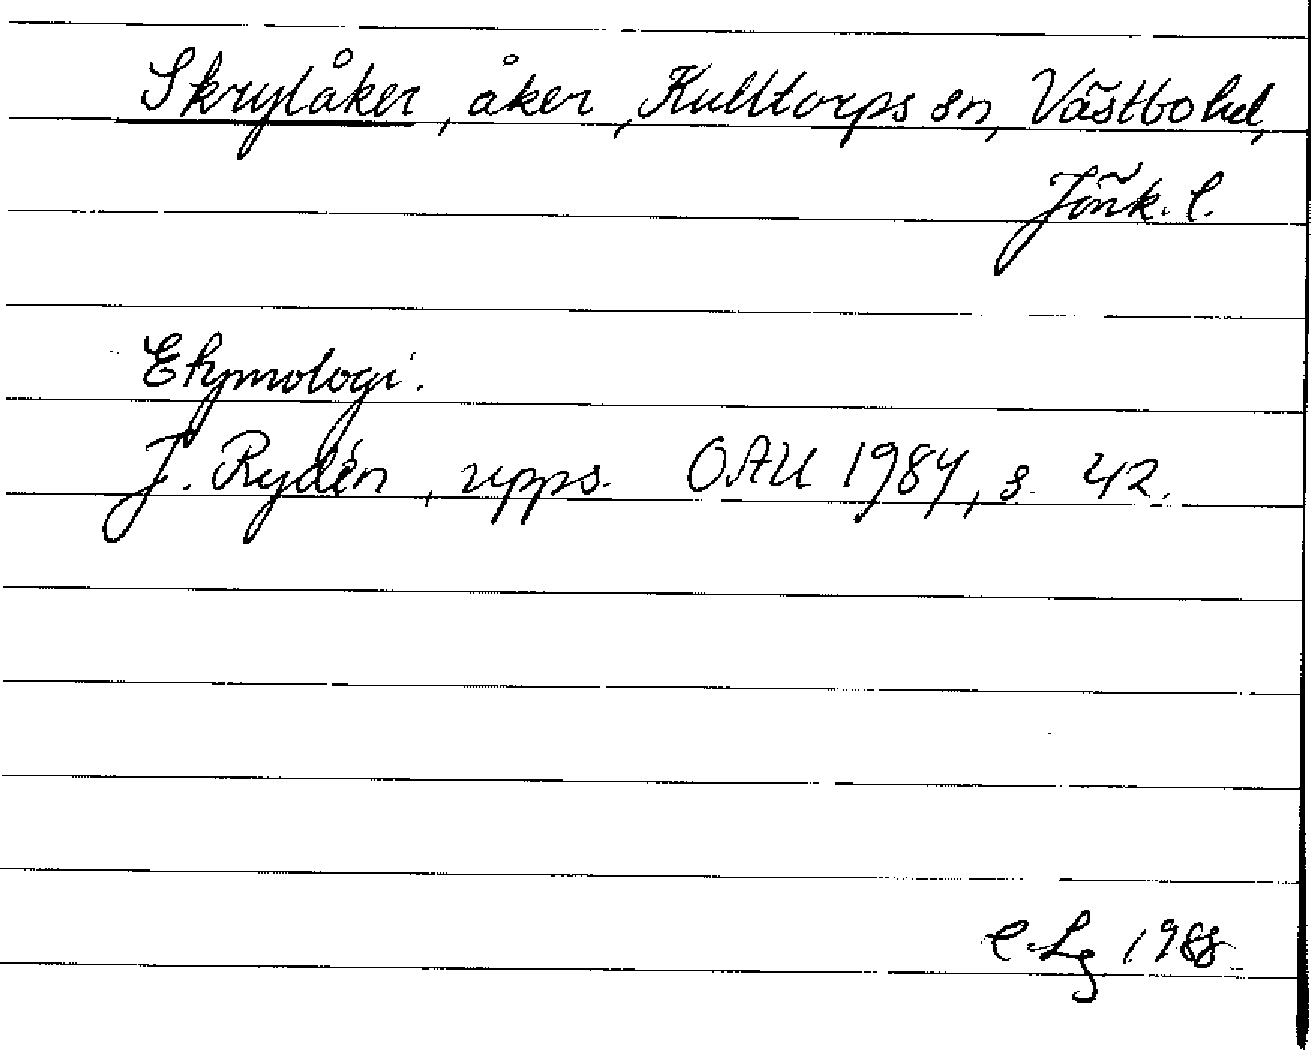 Skrytåker, åker, Kulltorps sn, Västbo hd,
Jönk. l.
Etymologi.
J. Rydén, upps. OAU 1984, s. 42.
C Lg 1988